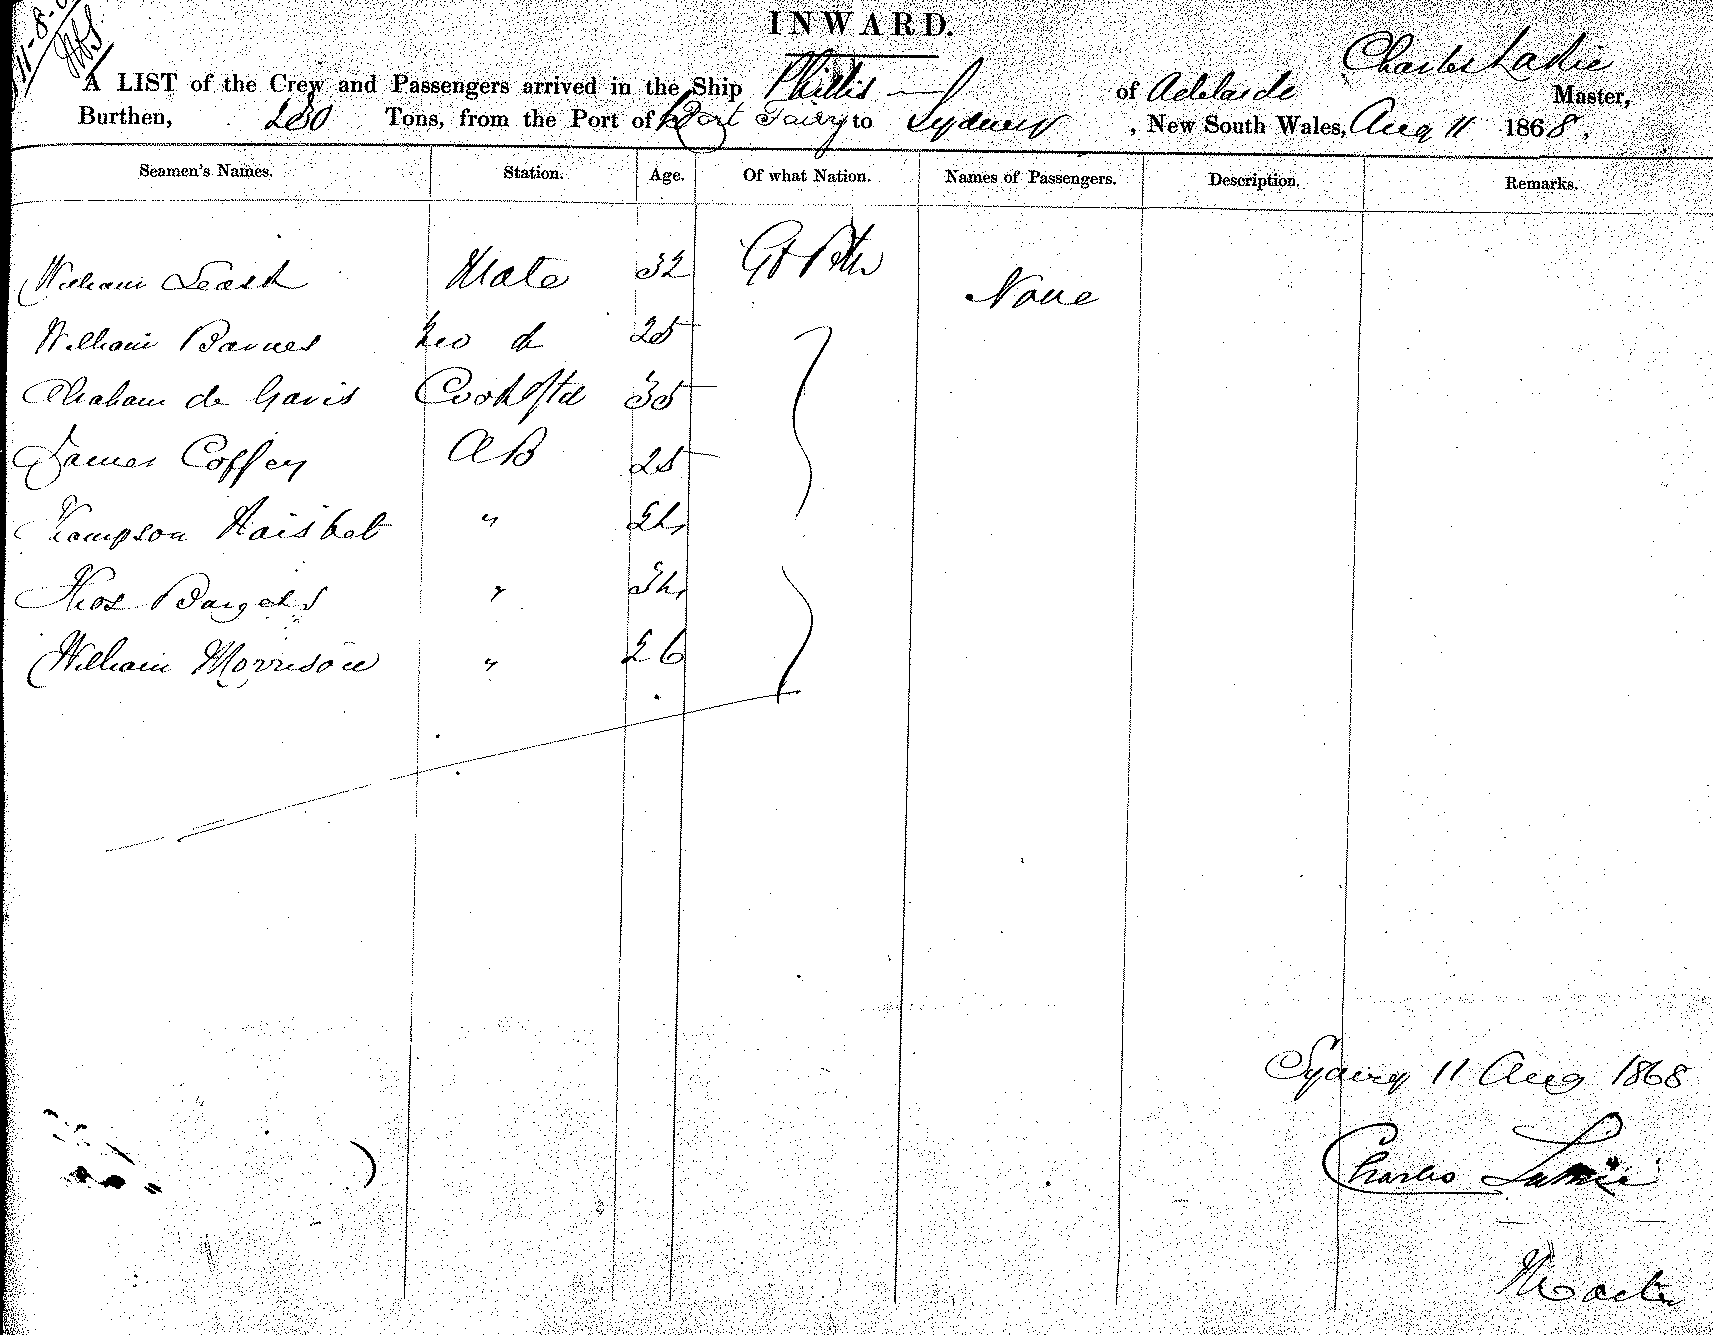 INWARD.
11-8-
Charles Lakie
A LIST of the Crew and Passengers arrived in the Ship Phillis of Adelaide Master,
Burthen, 280 Tons, from the Port of Port Fairy to Sydney, New South Wales, Aug 11 1868.
Seamen's Names. Station. Age. Of what Nation. Names of Passengers. Description. Remarks.
William Leask Mate 32 Gt Britn None
William Barnes 25
de Cook Std 35
James Coffey AB 25
" 24
Thos " 34
William Morrison " 26
Sydney 11 Aug 1868
Charles
Master